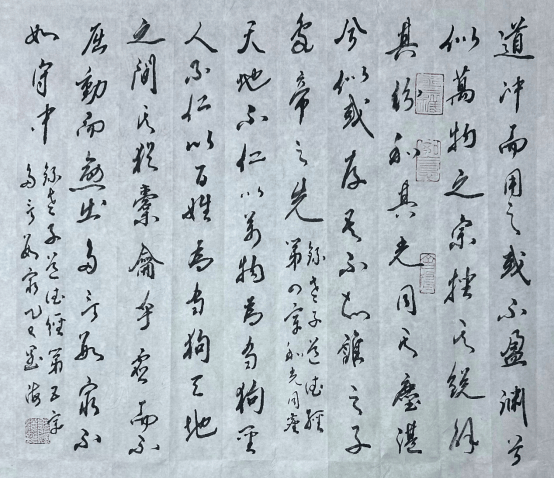 道冲而用之或不盈淵兮
似萬物之宗挫其銳解
其紛和其光同其塵湛
兮似或存吾不知誰之子
象帝之先
錄老子道德經
第四章和光同塵
天地不仁以萬物為芻狗聖
人不仁以百姓為芻狗天地
之間其猶橐龠乎虛而不
屈動而愈出多言數窮不
如守中
錄老子道德經第五章
多言數窮